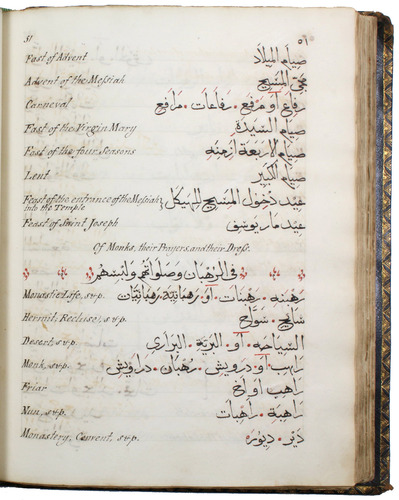 51 ٥١
Fast of Advent صيام الميلاد
Advent of the Messiah مجي المسيح
Carneval رفاع او مرفع . رفاعات . مرافع
Fast of the Virgin Mary صيام السيدة
Fast of the four Seasons صيام الاربعة ازمنه
Lent صيام الكبير
Feast of the entrance of the Messiah into the Temple } عيد دخول المسيح للهيكل
Feast of Saint Joseph عيد مار يوسف
Of Monks, their Prayers, and their Dress.
في الرهبان وصلواتهم ولبسهم
Monastic Life, s&p. رهبنه . رهبنات او رهبانية رهبانيات
Hermit, Recluse, s&p. سايح . سواح
Desert, s&p. السياحه او البرية . البراري
Monk, s&p. راهب او درويش . رهبان . دراويش
Friar راهب او اخ
Nun, s&p. راهبة . راهبات
Monastery, Convent, s&p. دير . ديوره